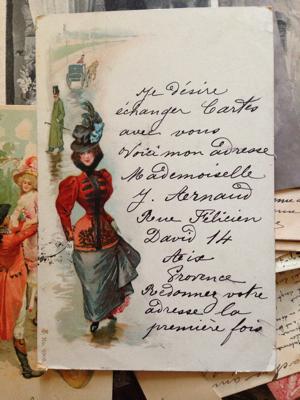 Je désire
échanger Cartes
avec vous
Voici mon adresse
Mademoiselle
J. Arnaud
Rue Félicien
David 14
Aix
Provence
Redonnez votre
adresse la
première fois